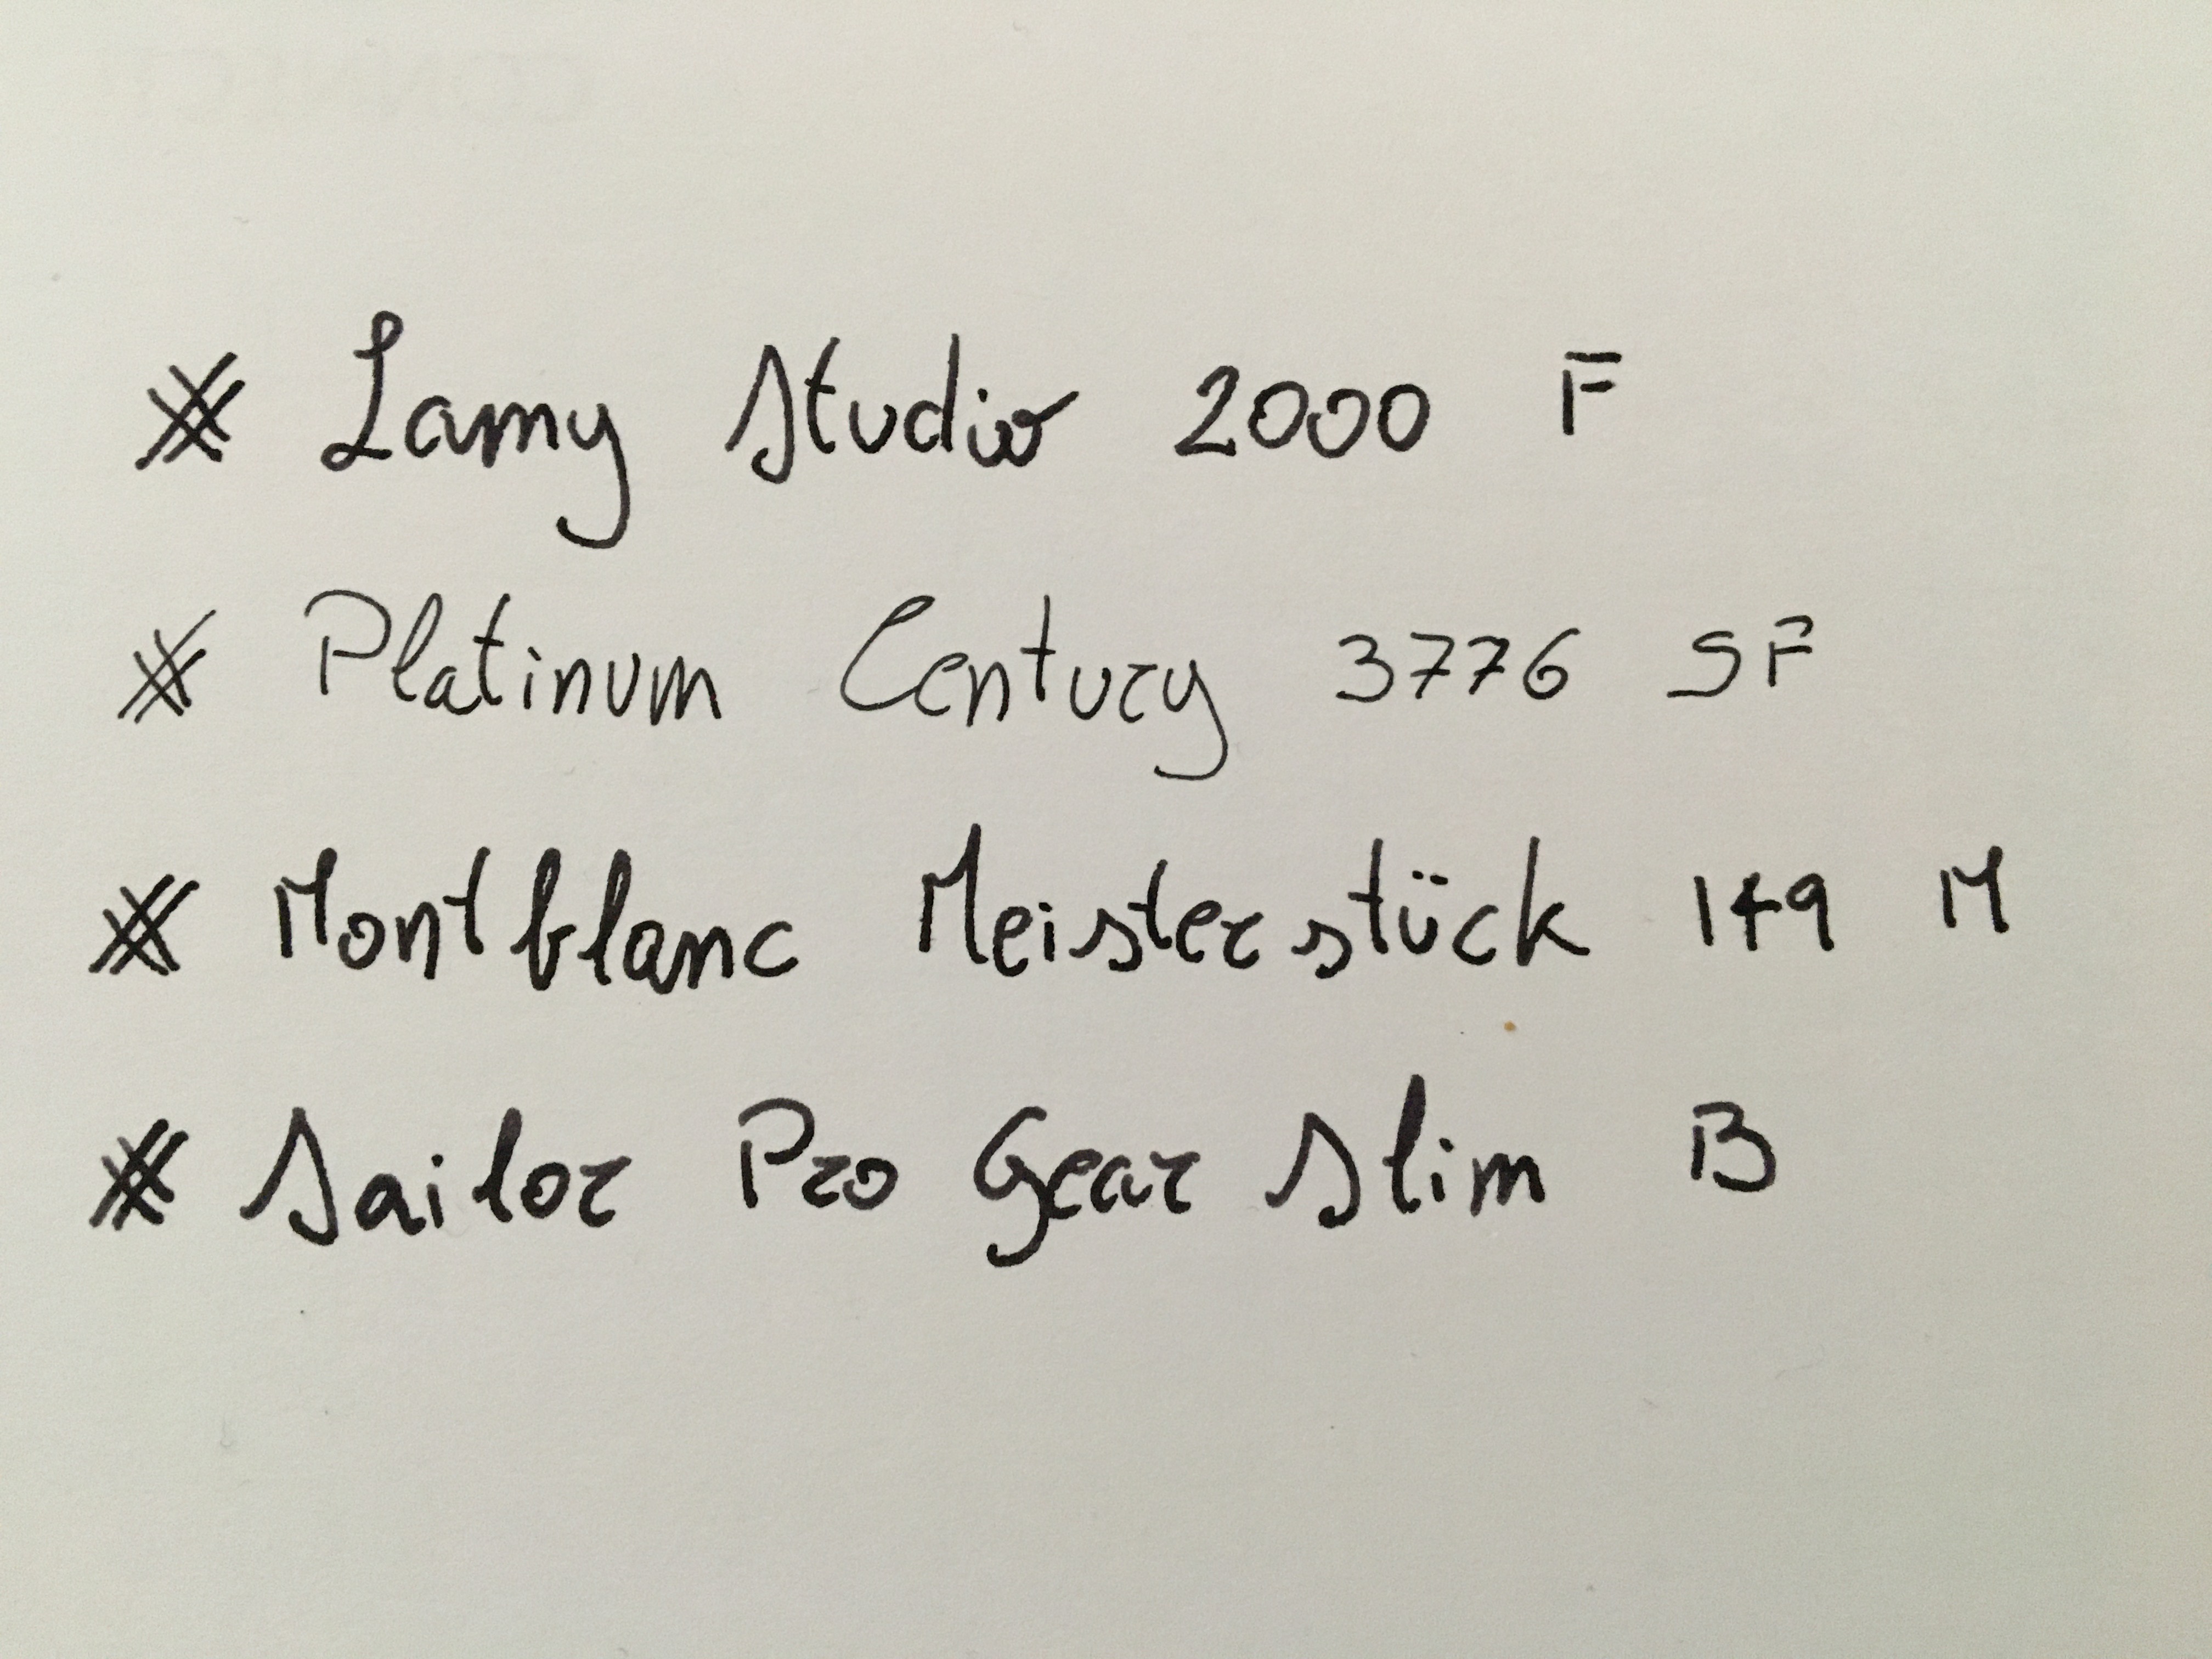 Lamy Studio 2000 F
Platinum Century 3776 SF
Montblanc Meisterstück 149 M
Sailor Pro Gear Slim B